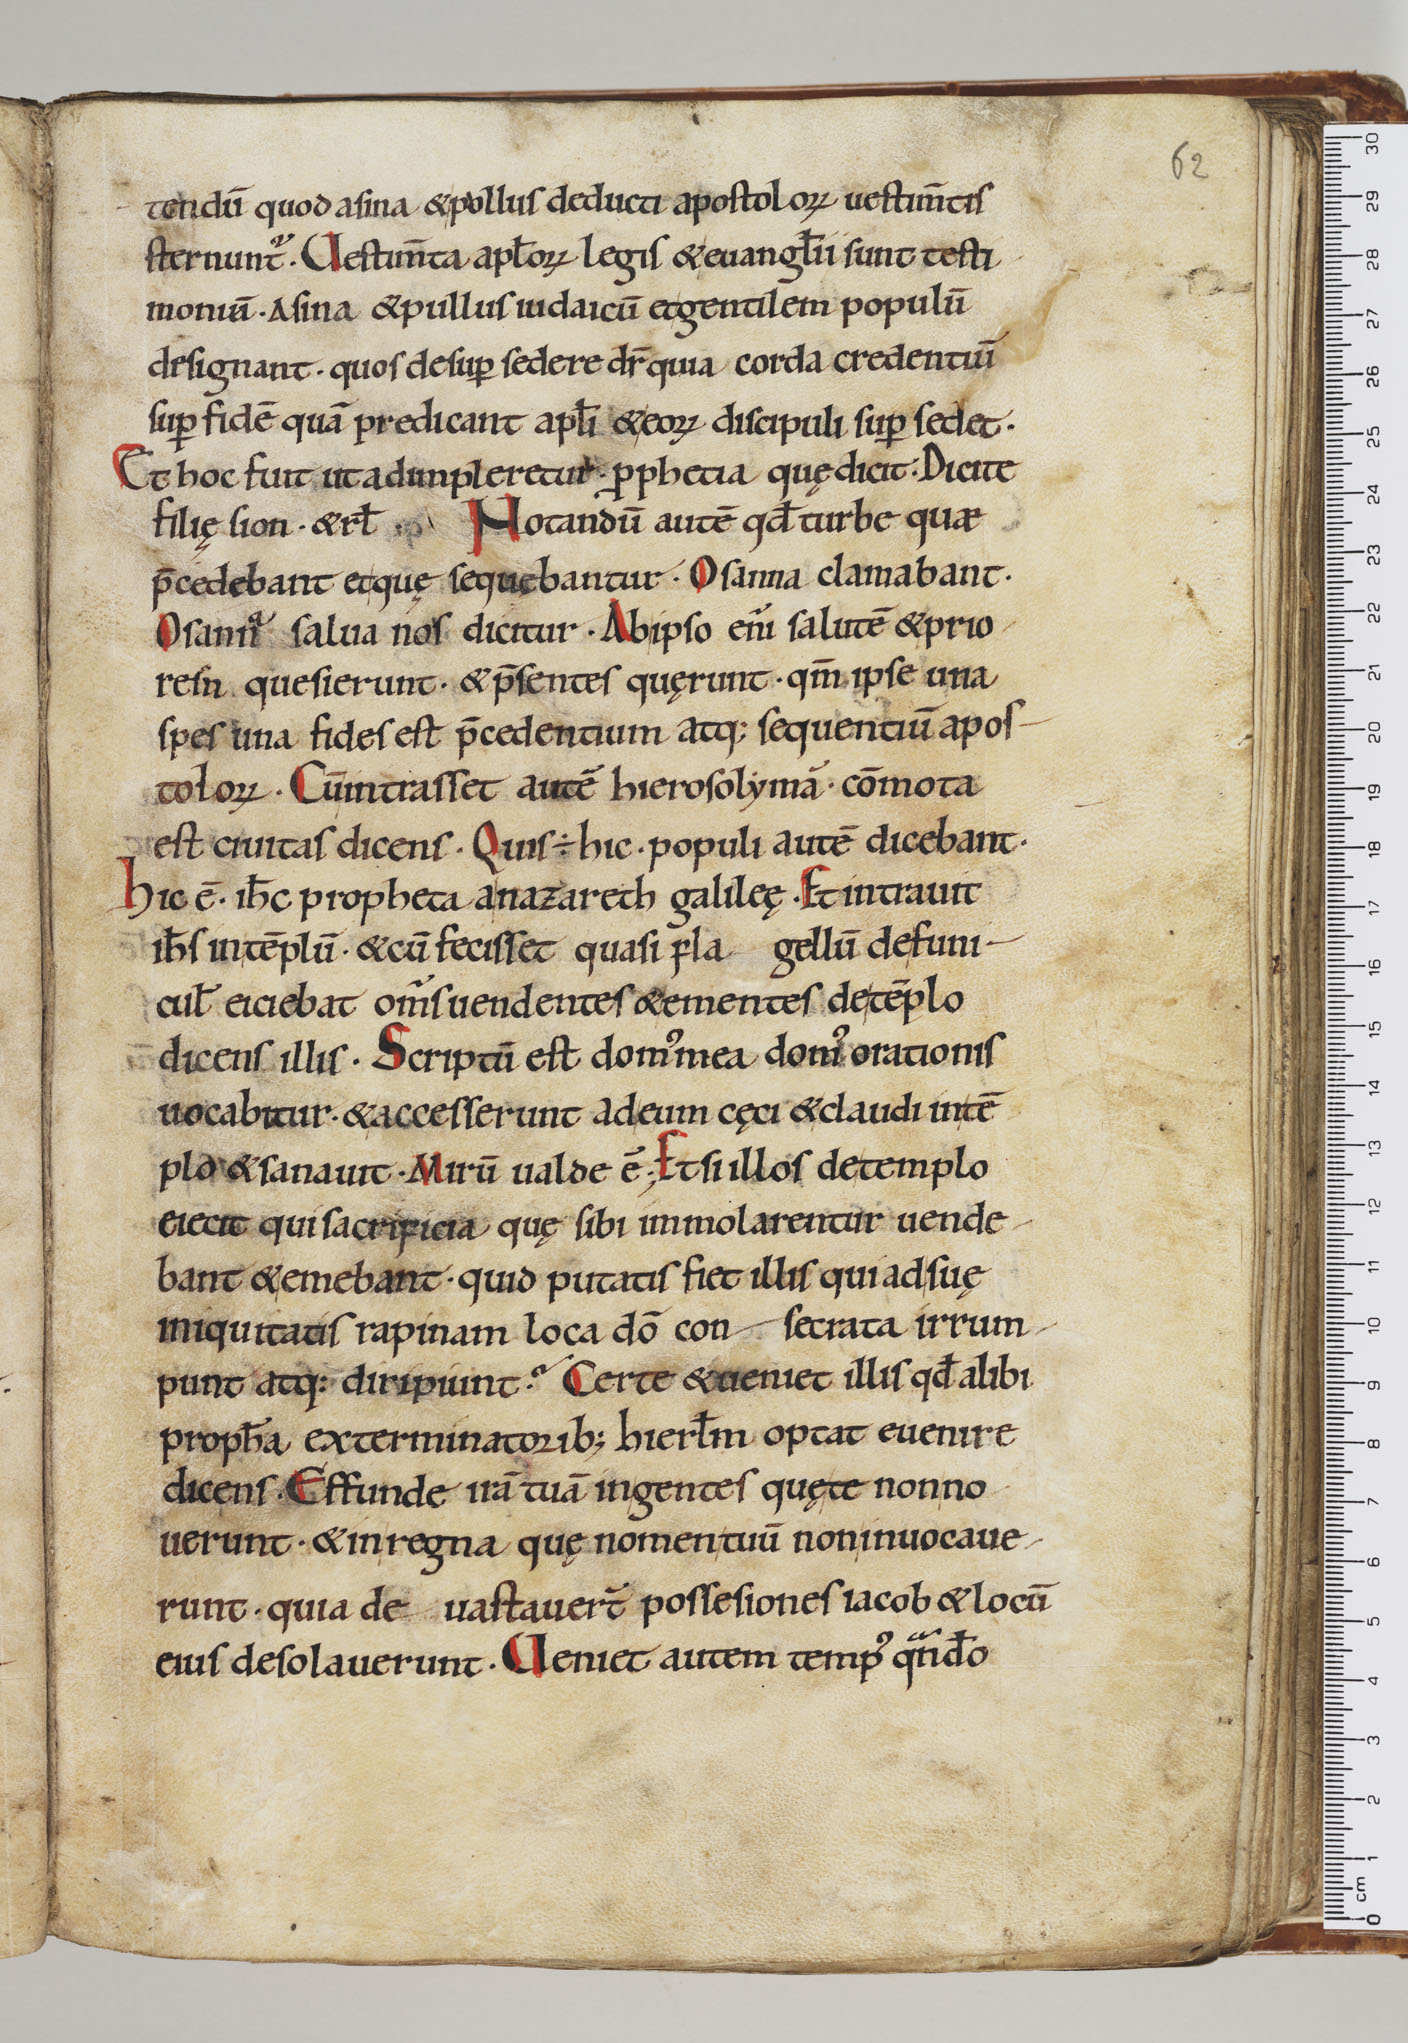 62
tendū quod asina & pollus deducti apostoloꝝ uestim̄tis
sternunt᷑. Uestim̄ta apl̄oꝝ legis & euangl̄ii sunt testi
moniū. Asina & pullus iudaicū et gentilem populū
designant. quos desuꝑ sedere dr̄ quia corda credentiū
suꝑ fidē quā predicant apl̄i & eoꝝ discipuli suꝑ sedet.
Et hoc fuit ut adimpleretur. ꝓphetia quę dicit. Dicite
filię sion. & rl̄ Notandū autē qd̄ turbe quæ
p̄cedebant et quę sequebantur. Osanna clamabant.
Osannᵃ salua nos dicitur. Ab ipso eni̅ salutē & prio
resn quesierunt. & p̄sentes quęrunt. qm̄ ipse una
spes una fides est p̄cedentium atq; sequentiū apos
toloꝝ. Cū intrasset autē hierosolymā. cōmota
est ciuitas dicens. Quis ÷ hic. populi autē dicebant.
hic ē. ih̄c propheta a nazareth galileę. Et intrauit
ih̄s in tēplū. & cū fecisset quasi fla gellū de funi
cul̄ eiciebat om̄s uendentes & ementes de tēplo
dicens illis. Scriptū est domꝰ mea domꝰ orationis
uocabitur. & accesserunt ad eum cęci & claudi in tē
plo & sanauit. Mirū ualde ē. Et si illos de templo
eiecit qui sacrificia quę sibi immolarentur uende
bant & emebant. quid putatis fiet illis qui ad suę
iniquitatis rapinam loca dō con secrata irrum
punt atq; diripiunt? Certe & ueniet illis qd̄ alibi
proph̄a exterminatorib; hierl̄m optat euenire
dicens. Effunde irā tuā in gentes quę te non no
uerunt. & in regna quę nomen tuū non inuocaue
runt. quia de uastauer̄t possesiones iacob & locū
eius desolauerunt. Ueniet autem tempꝰ qᵃndo